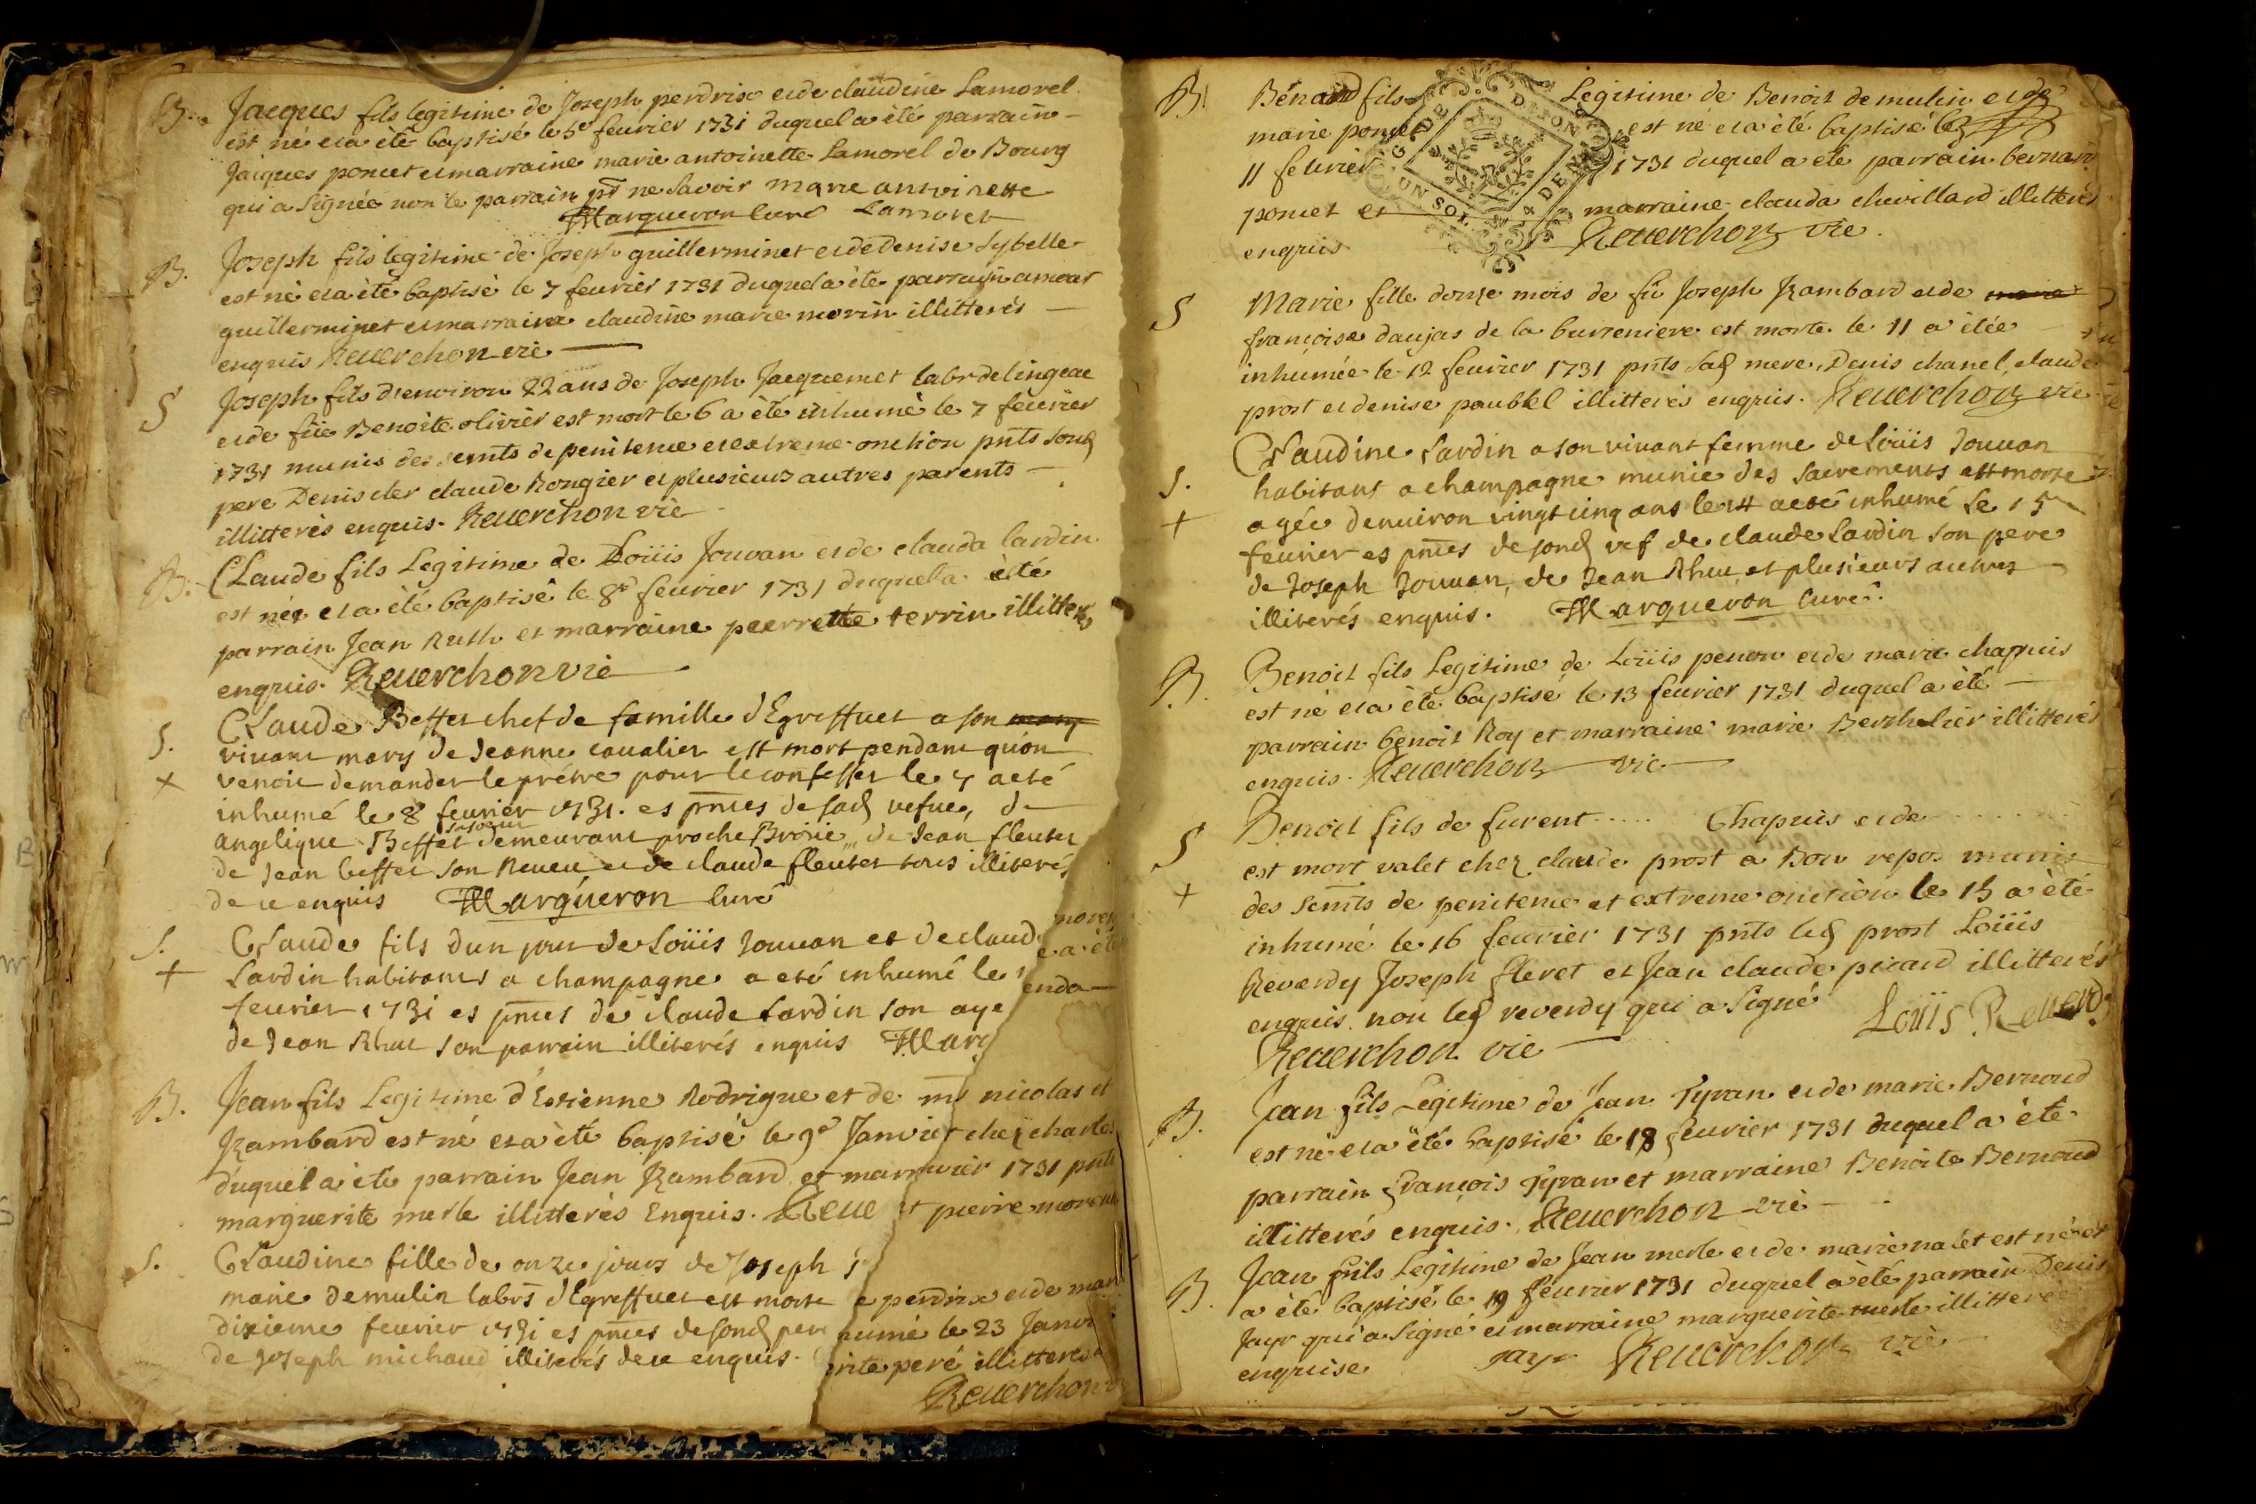 B. Jacques fils legitime de Joseph perdrix et de claudine Lamorel
est né et a été baptisé le 5e feurier 1731 duquel a été parrain
Jacques poncet et marraine marie antoinette Lamorel de Bourg
qui a signée non le parrain pt ne savoir marie antoinette
Marqueron curé Lamorel
B. Joseph fils legitime de Joseph guillerminet et de Denise Sybelle
est né et a été baptisé le 7 feurier 1731 duquel a été parrain amour
guillerminet et marraine claudine marie morin illitterés
enquis Reuerchon vic
S Joseph fils d'enuiron 22 ans de Joseph Jacquemet labr de lingeat
et de füe Benoite oliuier est mort le 6 a été inhumé le 7 feurier
1731 munis des semts de penitence et extreme onction pnts sond
pere Denis claude Rongier et plusieurs autres parents
illitterés enquis. Reuerchon vic
B. Claude fils Legitime de Loüis Jouuan et de clauda lardin
est né et a été baptisé le 8e feurier 1731 duquel a été
parrain Jean Ruth et marraine pierrette terrin illitterés
enquis. Reuerchon vic
S. Claude Beffet chef de famille d'Egreffuet a son mary
viuant mary de Jeanne caualier est mort pendant qu'on
+ venoit demander le prétre pour le confesser le 7 a eté
inhumé le 8 feurier 1731. es pnces de sad vefue, de
sa soeur
angelique Beffet demeurant proche Broüe, de Jean fleutet
de Jean beffet son neueu et de claude fleutet tous illiterés
de ce enquis Marqueron curé
S. Claude fils d'un jour de Loüis Jouuan et de claud
+ Lardin habitants a champagne a eté inhumé le
feurier 1731 es pnces de claude Lardin son aye
de Jean Rhut son parrain illiterés enquis Marq
B. Jean fils Legitime d'Estienne Rodrigue et de
Rambard est né et a été baptisé le 9e
duquel a été parrain Jean Rambard et marr
marguerite merle illitterés Enquis. Reue
S. Claudine fille de onze jours de Joseph
marie demulin labrs d'Egreffuet est morte
dixieme feurier 1731 es pnces de sond per
de Joseph michaud illiterés de ce enquis.
a été
enda
nicolas et
Janvier chez charles
uier 1731 pnts
et pierre
e perdrix et de mar
humé le 23 Janvi
rite peré illitteres
Reuerchon
B. Bénard fils Legitime de Benoit demulin et de
marie poncet est né et a été baptisé le
11 feurier 1731 duquel a été parrain bernard
poncet et marraine clauda cheuillard illitterés
enquis Reuerchon vic.
G DE DIJON
UN SOL 4 DEN
S Marie fille douze mois de fü Joseph Rambard et de
françoise daujas de la bureniere est morte le 11 a étée
inhumée le 12 feurier 1731 pnts sad mere, Denis chanel, claude
prost et denise paubbel illitterés enquis. Reuerchon vic
Claudine Lardin a son viuant femme de Loüis Jouuan
S. habitant a champagne munie des sacrements est morte
+ agée denuiron vingt cinq ans le 14 a eté inhumé le 15
feurier es pnces de sond vef de claude Lardin son pere
de Joseph Jouuan, de Jean Rhut et plusieurs autres
illiterés enquis. Marqueron curé.
B. Benoit fils Legitime de Loüis penon et de marie chapuis
est né et a été baptisé le 13 feurier 1731 duquel a été
parrain benoit Roy et marraine marie Berthelier illitterés
enquis. Reuerchon vic
S Benoit fils de furent ..... Chapuis et de ........
est mort valet chez claude prost a Bon repos munis
+ des semts de penitence et extreme onction le 15 a été
inhumé le 16 feurier 1731 pnts led prost Loüis
Reverdy Joseph fleret et Jean claude picard illitterés
enquis. non led reverdy qui a signé Loüis Reuerdy
Reuerchon vic
B. Jean fils Legitime de Jean Tyran et de marie Bernoud
est né et a été baptisé le 18 feurier 1731 duquel a été
parrain françois Tyran et marraine Benoite Bernoud
illitterés enquis. Reuerchon vic
B. Jean fils Legitime de Jean merle et de marie nalet est né et
a été baptisé le 19 feurier 1731 duquel a été parrain Denis
Jayr qui a signé et marraine marguerite merle illitterée
enquise jayr Reuerchon vic